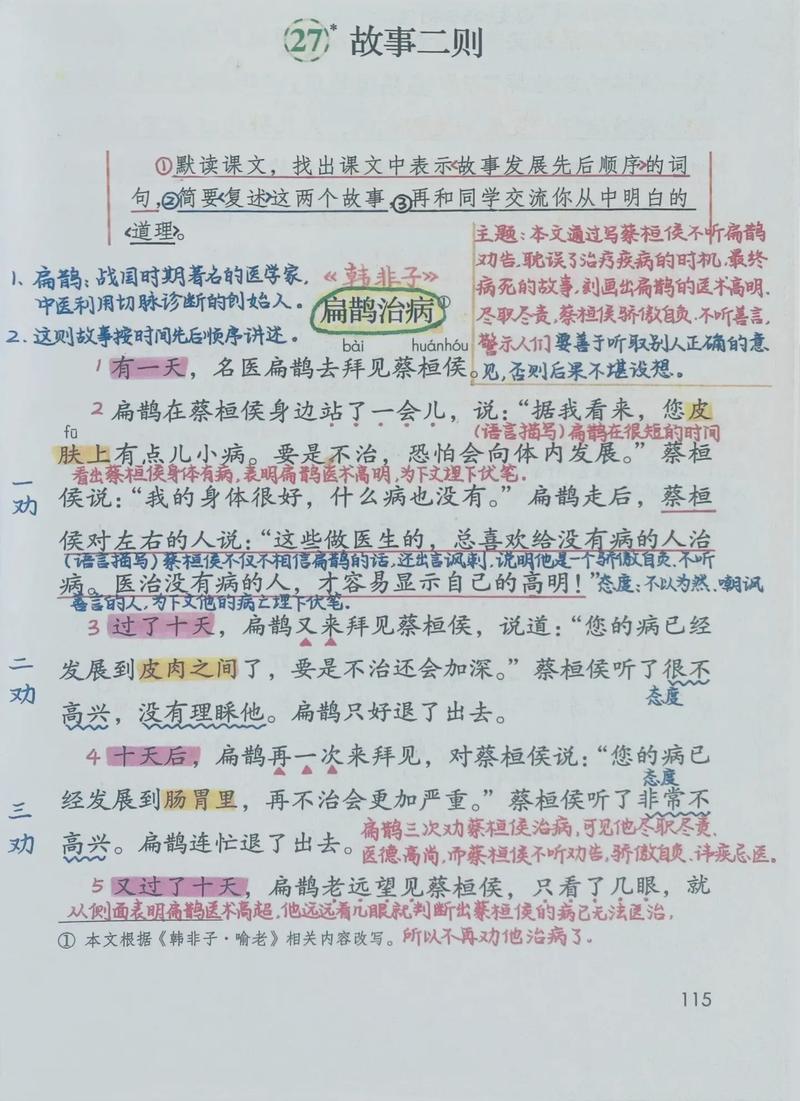 27* 故事二则
①默读课文，找出课文中表示《故事发展先后顺序》的词
句，②简要《复述》这两个故事，③再和同学交流你从中明白的
《道理》。
1、扁鹊：战国时期著名的医学家，
中医利用切脉诊断的创始人。
2、这则故事按时间先后顺序讲述。
《韩非子》
扁鹊治病①
主题：本文通过写蔡桓侯不听扁鹊
劝告，耽误了治疗疾病的时机，最终
病死的故事，刻画出扁鹊的医术高明、
尽职尽责，蔡桓侯骄傲自负、不听善言，
警示人们要善于听取别人正确的意
见，否则后果不堪设想。
bài huánhóu
1 有一天，名医扁鹊去拜见蔡桓侯。
2 扁鹊在蔡桓侯身边站了一会儿，说：“据我看来，您皮
(语言描写)扁鹊在很短的时间
fū
肤上有点儿小病。要是不治，恐怕会向体内发展。”蔡桓
看出蔡桓侯身体有病，表明扁鹊医术高明，为下文埋下伏笔.
一劝
侯说：“我的身体很好，什么病也没有。”扁鹊走后，蔡桓
侯对左右的人说：“这些做医生的，总喜欢给没有病的人治
(语言描写)蔡桓侯不仅不相信扁鹊的话，还出言讽刺，说明他是一个骄傲自负、不听
病。医治没有病的人，才容易显示自己的高明！”态度：不以为然、嘲讽
善言的人，为下文他的病亡埋下伏笔.
3 过了十天，扁鹊又来拜见蔡桓侯，说道：“您的病已经
二劝
发展到皮肉之间了，要是不治还会加深。”蔡桓侯听了很不
态度
高兴，没有理睬他。扁鹊只好退了出去。
4 十天后，扁鹊再一次来拜见，对蔡桓侯说：“您的病已
态度
经发展到肠胃里，再不治会更加严重。”蔡桓侯听了非常不
三劝
高兴。扁鹊连忙退了出去。
扁鹊三次劝蔡桓侯治病，可见他尽职尽责、
医德高尚，而蔡桓侯不听劝告，骄傲自负、讳疾忌医。
5 又过了十天，扁鹊老远望见蔡桓侯，只看了几眼，就
从侧面表明扁鹊医术高超，他远远看几眼就判断出蔡桓侯的病已无法医治，
① 本文根据《韩非子·喻老》相关内容改写。所以不再劝他治病了.
115